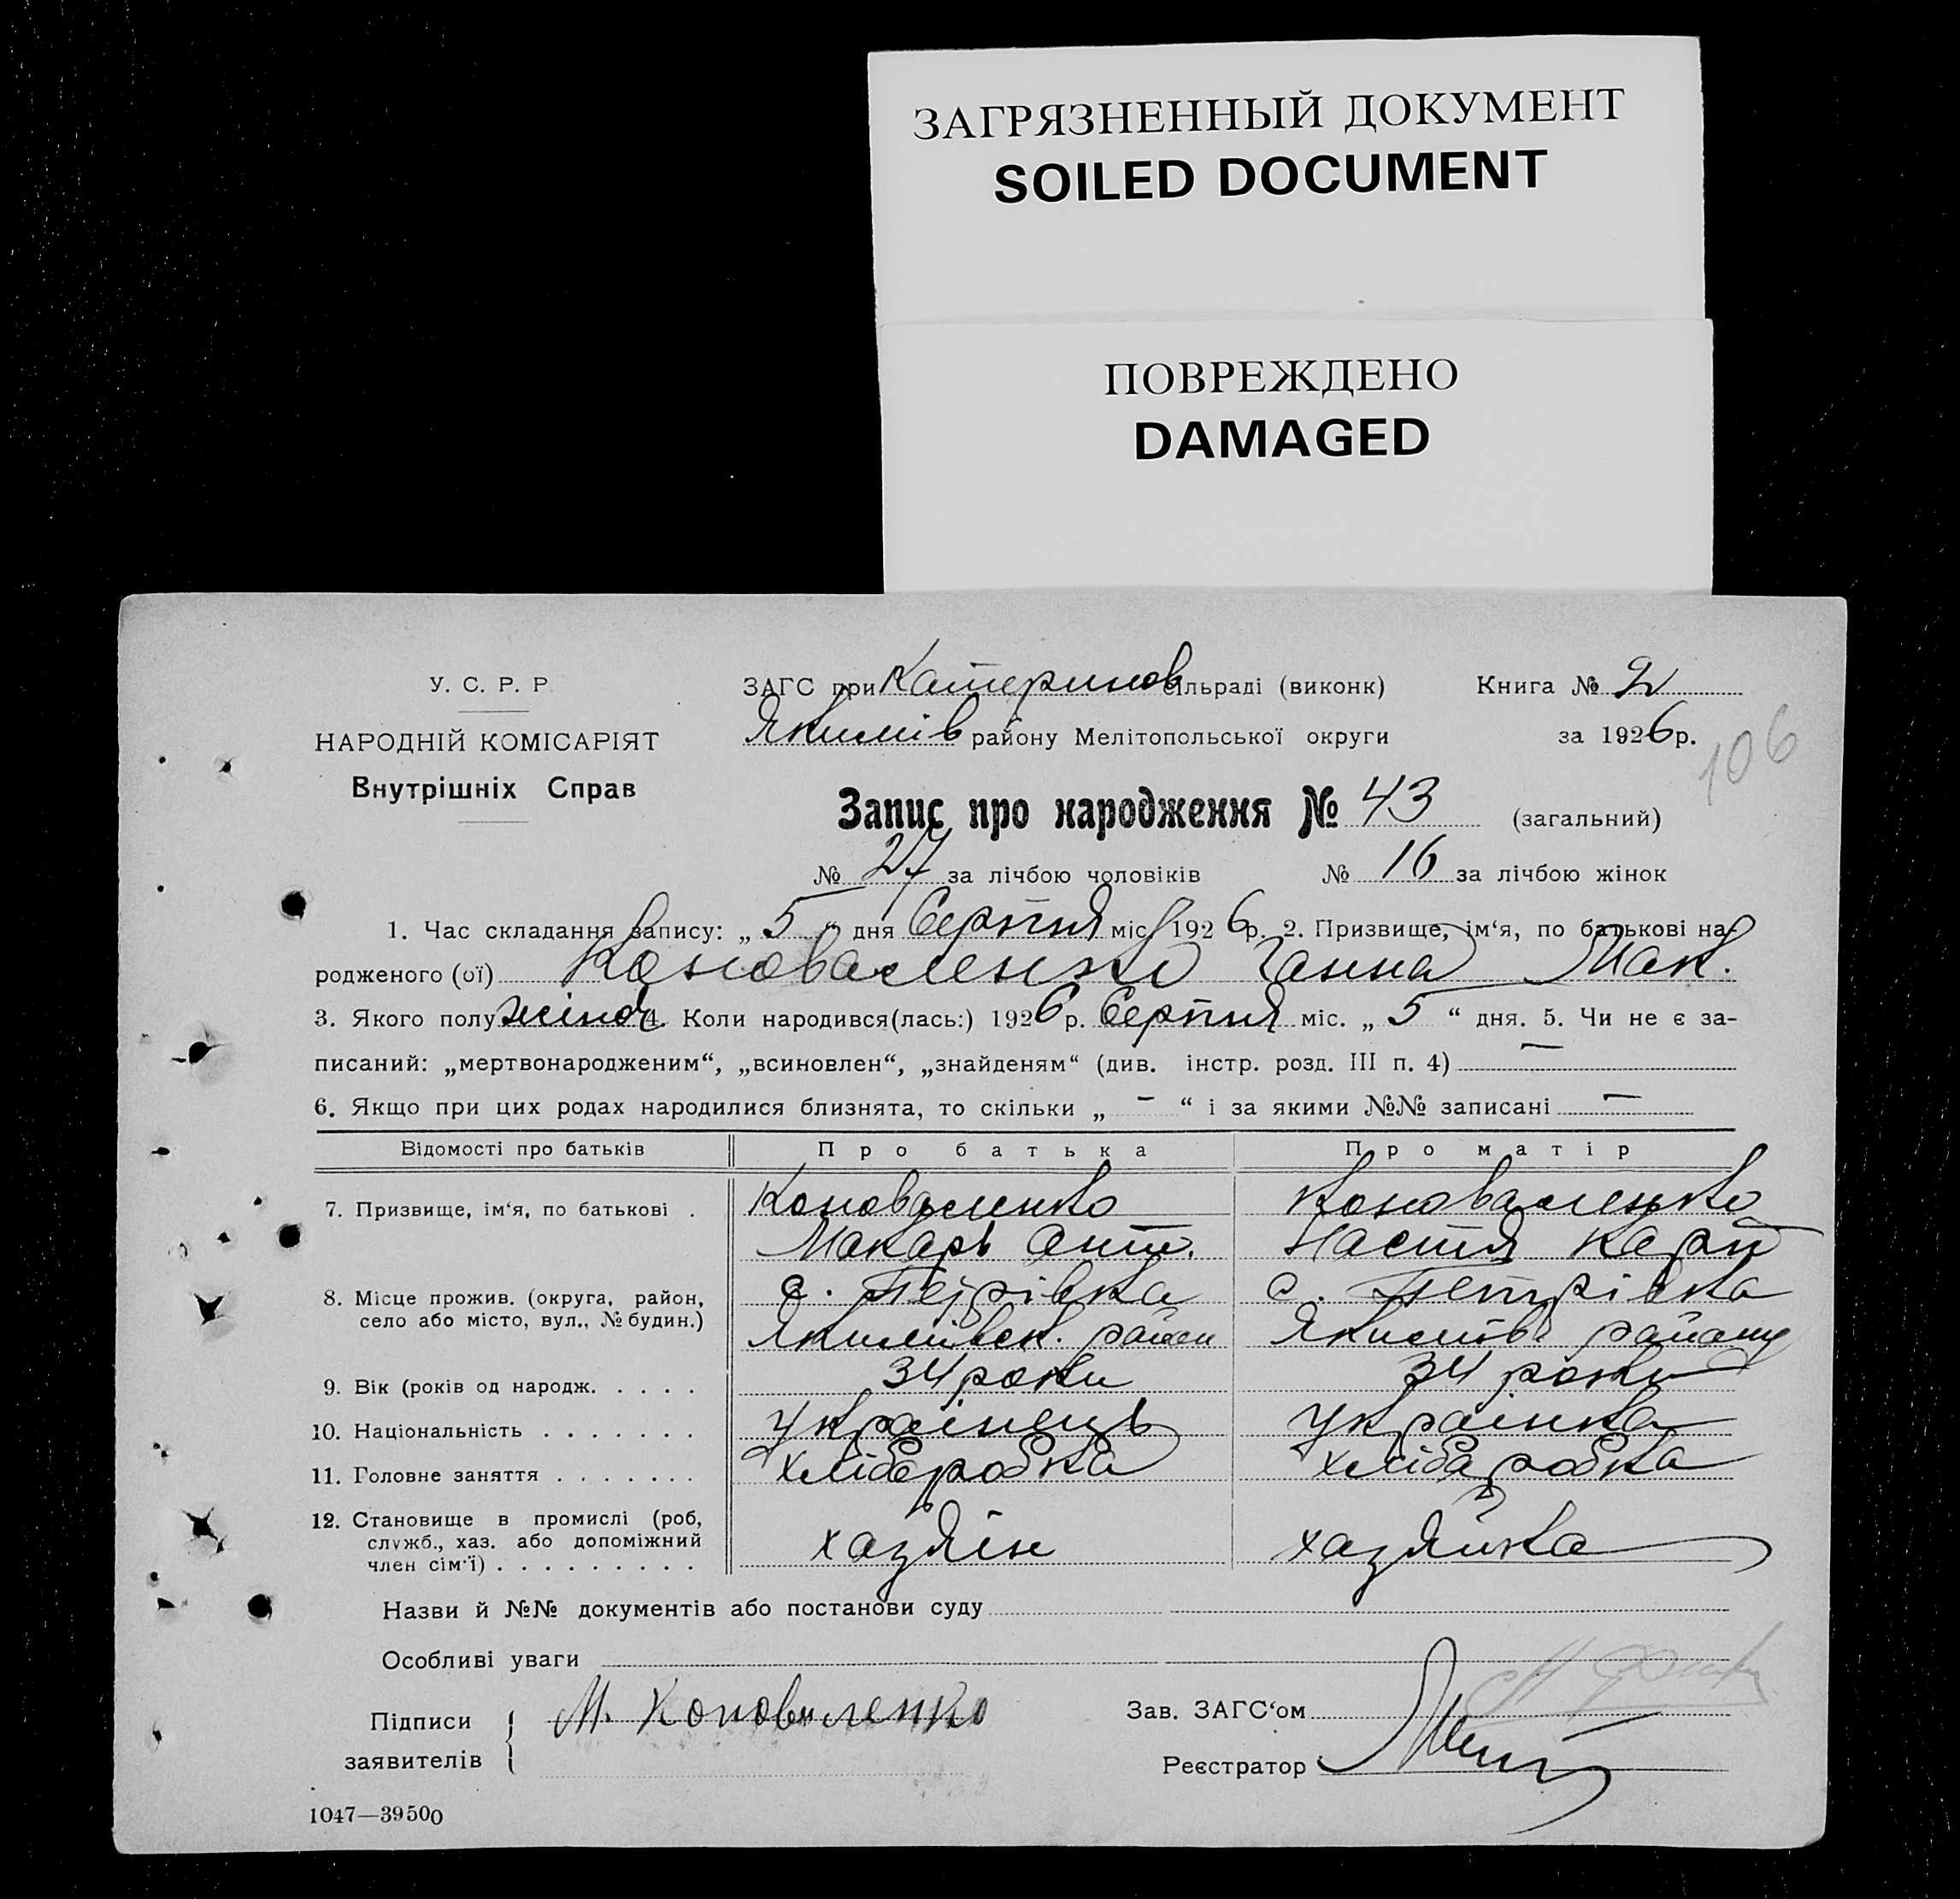 ЗАГРЯЗНЕННЫЙ ДОКУМЕНТ
SOILED DOCUMENT
ПОВРЕЖДЕНО
DAMAGED
У. С. Р. Р
НАРОДНІЙ КОМІСАРІЯТ
Внутрішніх Справ
ЗАГС при Катеринов сільраді (виконк)
Якимів району Мелітопольської округи
Книга № 2
за 1926 р.
106
Запис про народження № 43 (загальний)
№ 27 за лічбою чоловіків № 16 за лічбою жінок
1. Час складання запису: „ 5 “ дня Серпня міс 1926 р. 2. Призвище, ім‘я, по батькові на-
родженого (ої) Коноваленко Ганна Мак.
3. Якого полу жіноч 4. Коли народився(лась:) 1926 р. Серпня міс. „ 5 “ дня. 5. Чи не є за-
писаний: „мертвонародженим“, „всиновлен“, „знайденям“ (див. інстр. розд. III п. 4) —
6. Якщо при цих родах народилися близнята, то скільки „ – “ і за якими №№ записані —
Відомості про батьків Про батька Про матір
7. Призвище, ім‘я, по батькові . Коноваленко Коноваленко
Макарь Ант. Настя Карп
8. Місце прожив. (округа, район, с. Петрівка с. Петрівка
село або місто, вул., № будин.) Якимівськ. район Якимів. району
9. Вік (років од народж. . . . . 34 роки 34 роки
10. Національність . . . . . . . Українець Українка
11. Головне заняття . . . . . . . хліборобка хлібаробка
12. Становище в промислі (роб,
служб., хаз. або допоміжний хазяін хазяйка
член сім‘ї) . . . . . . . . .
Назви й №№ документів або постанови суду
Особливі уваги
Підписи
заявителів
М. Коноваленко
Зав. ЗАГС‘ом
Реєстратор
1047—39500